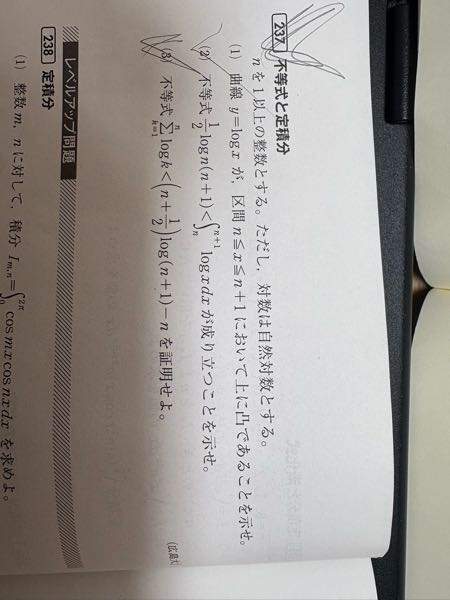 237 不等式と定積分
nを1以上の整数とする。ただし,対数は自然対数とする。
(1) 曲線 y=logx が,区間 n≦x≦n+1 において上に凸であることを示せ。
(2) 不等式 1/2 logn(n+1)<∫_n^{n+1} logxdx が成り立つことを示せ。
(3) 不等式 ∑_{k=1}^{n} logk<(n+1/2)log(n+1)−n を証明せよ。
(広島大
レベルアップ問題
238 定積分
(1) 整数 m, n に対して,積分 I_{m,n}=∫_0^{2π} cosmxcosnxdx を求めよ。